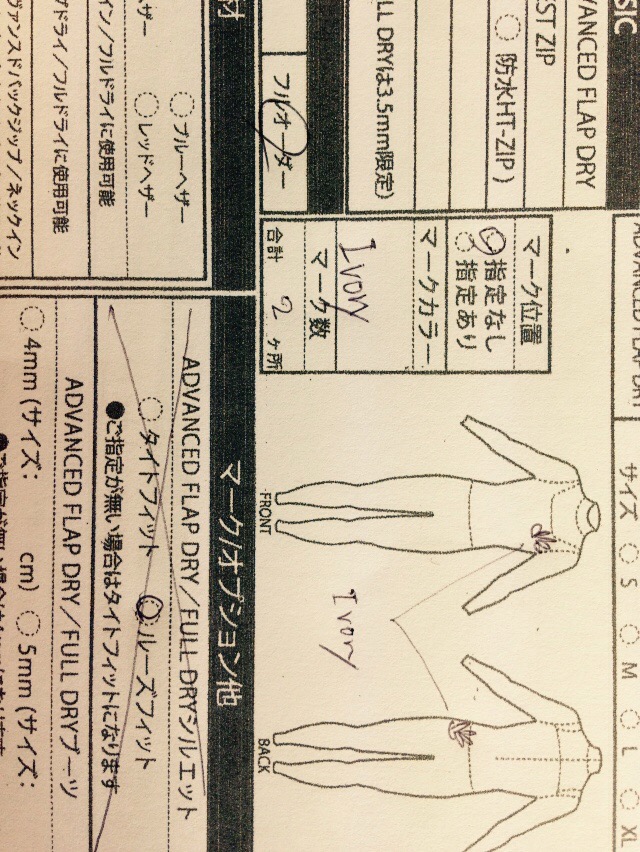 SIC
VANCED FLAP DRY
EST ZIP
防水HT-ZIP )
LL DRYは3.5mm限定)
フルオーダー
材
ブルーヘザー
ザー
レッドヘザー
イン/フルドライに使用可能
ドライ/フルドライに使用可能
ヴァンスドバックジップ/ネックイン
マーク位置
指定なし
指定あり
マークカラー
Ivory
マーク数
合計 2 ヶ所
サイズ S M L XL
FRONT
BACK
Ivory
マーク/オプション他
ADVANCED FLAP DRY/FULL DRYシルエット
タイトフィット ルーズフィット
●ご指定が無い場合はタイトフィットになります
ADVANCED FLAP DRY/FULL DRYブーツ
4mm (サイズ: cm) 5mm (サイズ: